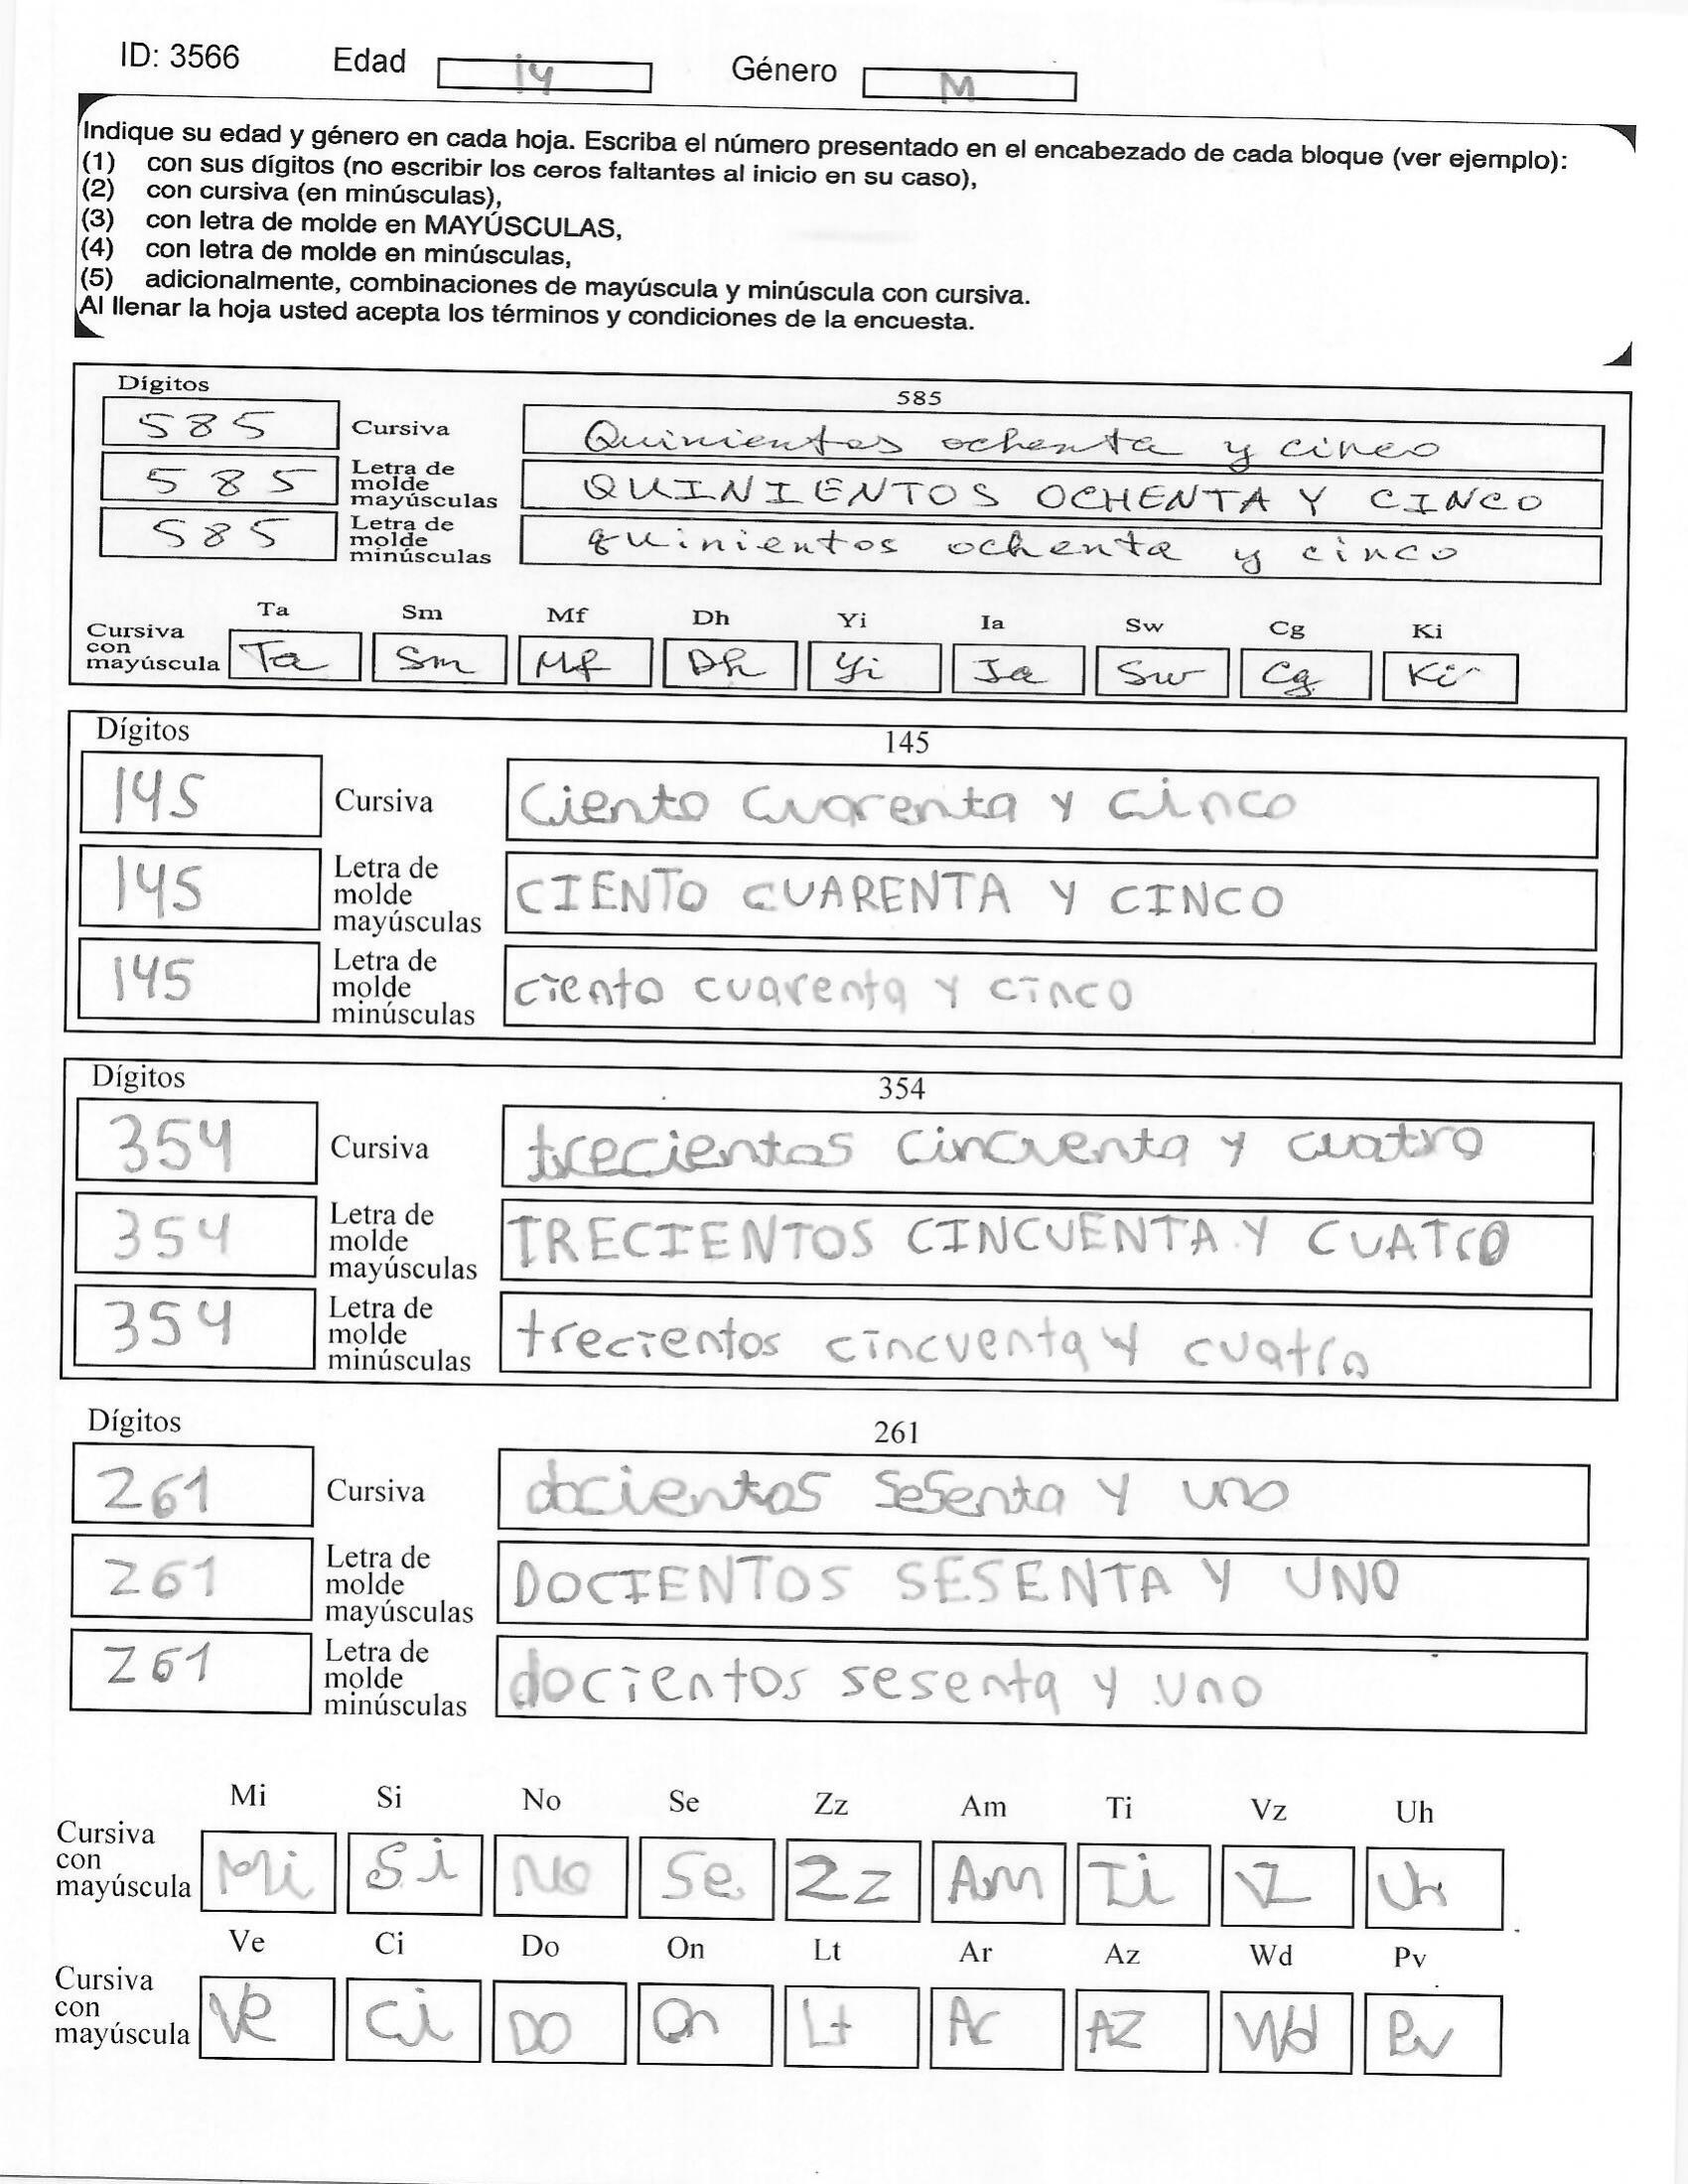 ID: 3566 Edad 14 Género M
Indique su edad y género en cada hoja. Escriba el número presentado en el encabezado de cada bloque (ver ejemplo):
(1) con sus dígitos (no escribir los ceros faltantes al inicio en su caso),
(2) con cursiva (en minúsculas),
(3) con letra de molde en MAYÚSCULAS,
(4) con letra de molde en minúsculas,
(5) adicionalmente, combinaciones de mayúscula y minúscula con cursiva.
Al llenar la hoja usted acepta los términos y condiciones de la encuesta.
Dígitos 585
585 Cursiva Quinientos ochenta y cinco
585 Letra de molde mayúsculas QUINIENTOS OCHENTA Y CINCO
585 Letra de molde minúsculas quinientos ochenta y cinco
Ta Sm Mf Dh Yi Ia Sw Cg Ki
Cursiva con mayúscula Ta Sm Mf Dh Yi Ia Sw Cg Ki
Dígitos 145
145 Cursiva Ciento Cuarenta y cinco
145 Letra de molde mayúsculas CIENTO CUARENTA Y CINCO
145 Letra de molde minúsculas ciento cuarenta y cinco
Dígitos 354
354 Cursiva trecientos cincuenta y cuatro
354 Letra de molde mayúsculas TRECIENTOS CINCUENTA Y CUATrO
354 Letra de molde minúsculas trecientos cincuenta y cuatro
Dígitos 261
261 Cursiva docientos sesenta y uno
261 Letra de molde mayúsculas DOCIENTOS SESENTA Y UNO
261 Letra de molde minúsculas docientos sesenta y uno
Mi Si No Se Zz Am Ti Vz Uh
Cursiva con mayúscula Mi Si No Se Zz Am Ti Vz Uh
Ve Ci Do On Lt Ar Az Wd Pv
Cursiva con mayúscula Ve Ci DO On Lt Ar AZ Wd Pv